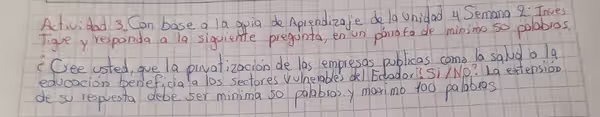 Actividad 3. Con base a la guía de Aprendizaje de la Unidad 4 Semana 2: Inves
Tigue y responda a la siguiente pregunta, en un párrafo de mínimo 50 palabras.
¿Cree usted, que la privatización de las empresas públicas como la salud o la
educación beneficia a los sectores vulnerables del Ecuador? Si/No? La extensión
de su respuesta debe ser mínima 50 palabras y maximo 100 palabras